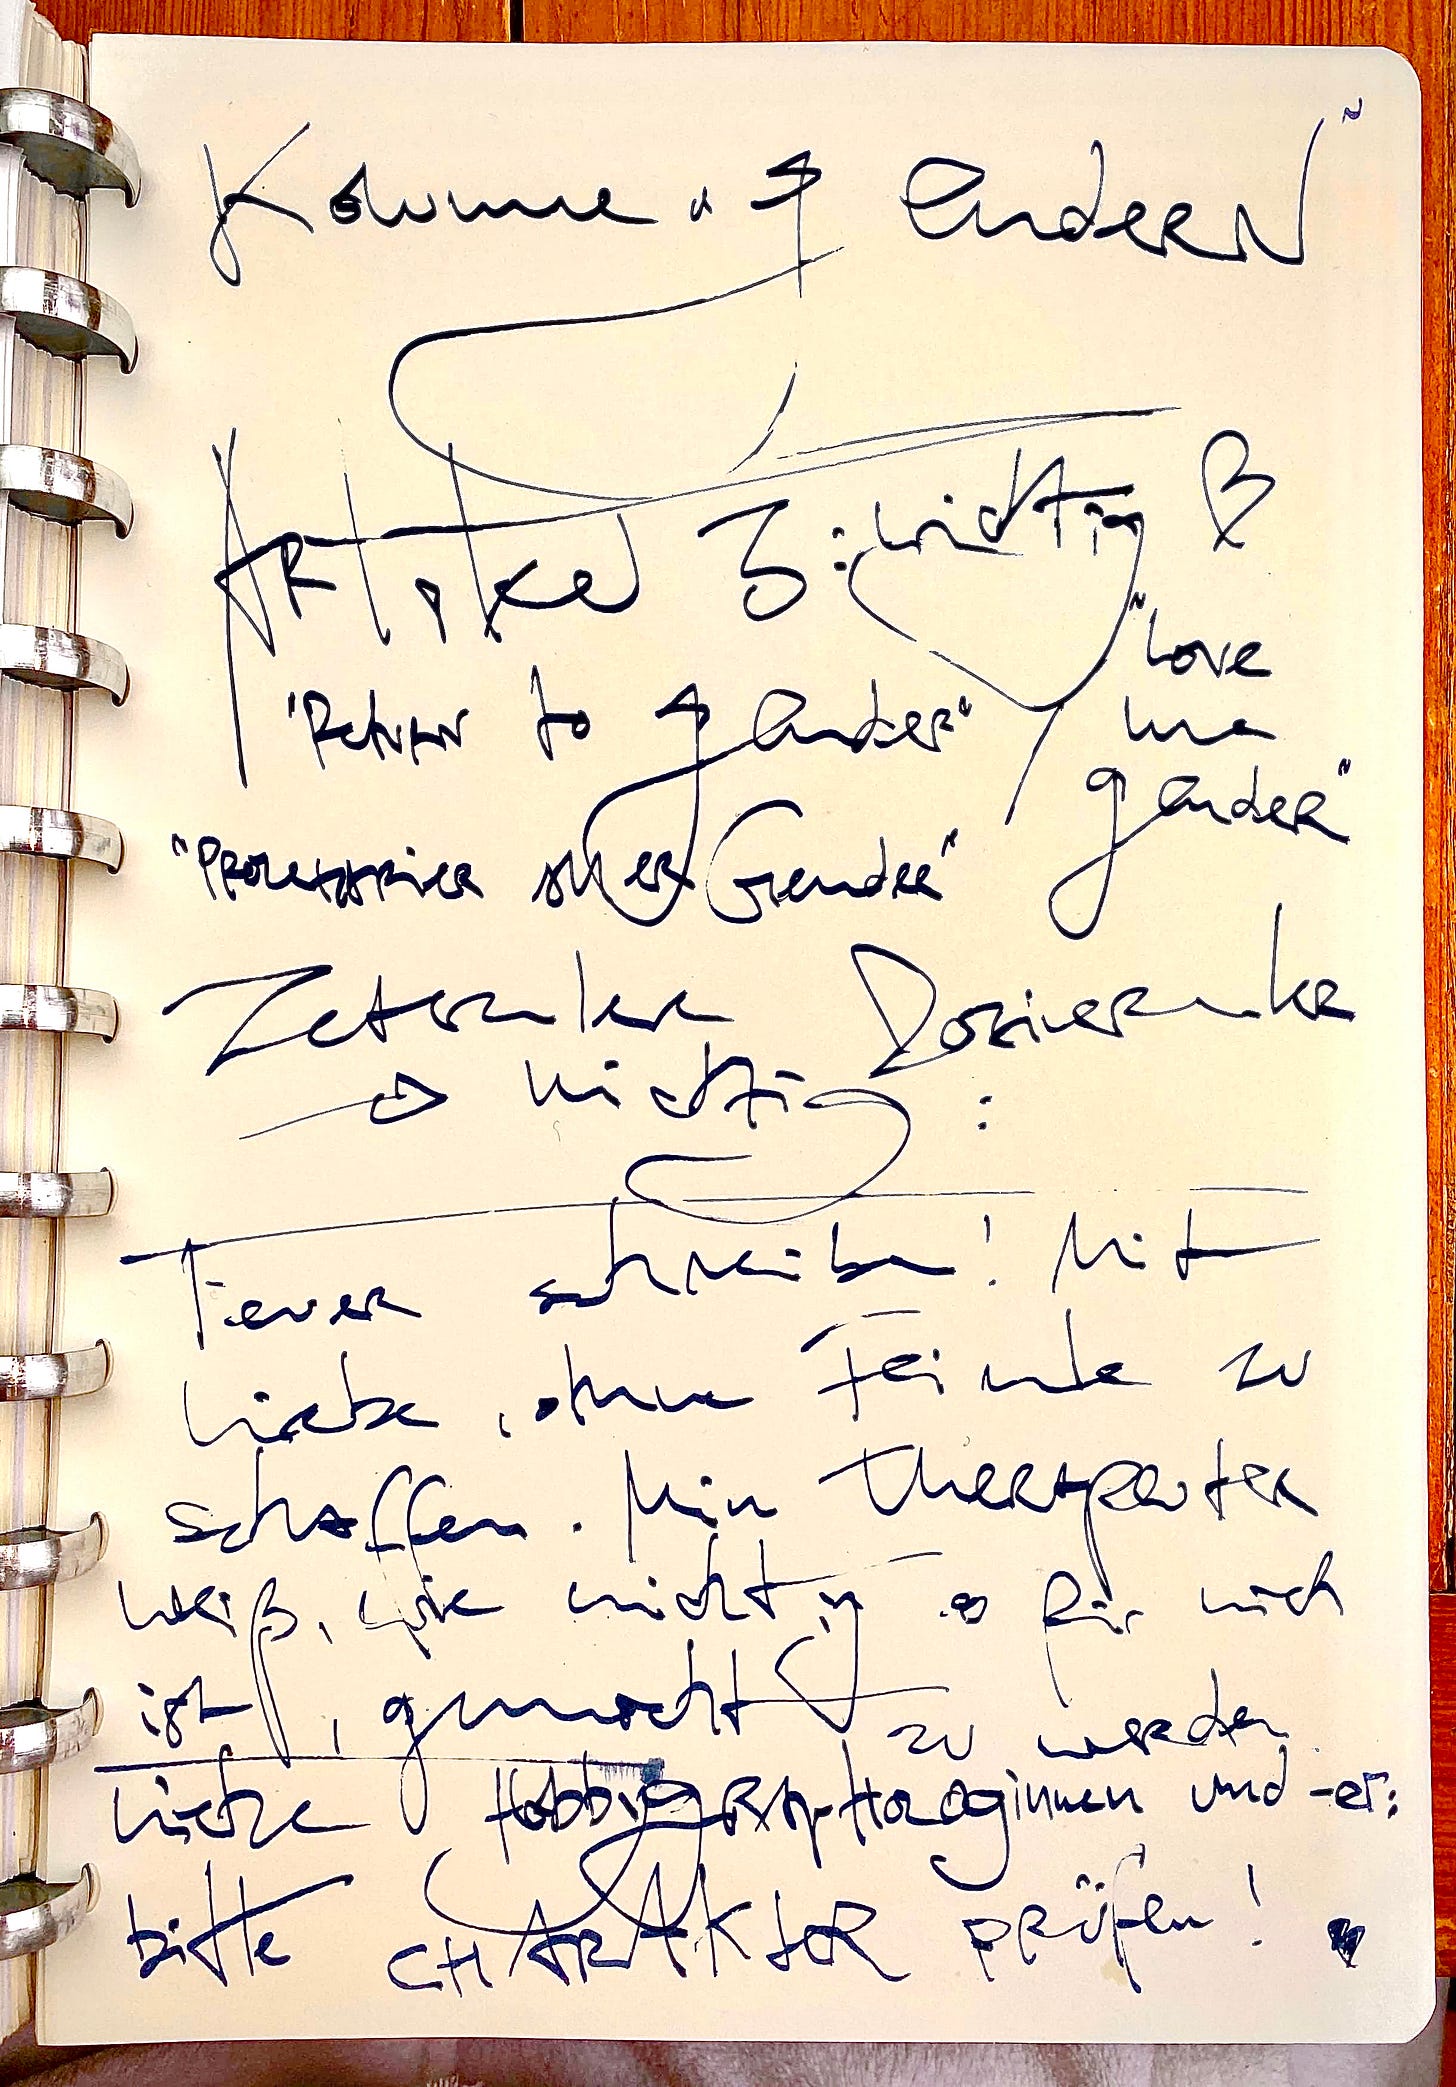 Kolumne "gendern"
Artikel 3: wichtig
"Return to gender"
"Love me gender"
"Proletarier aller Gender"
Zetern Dozieren
→ wichtig:
Feuer schreiben! Mit
Liebe, ohne Feinde zu
schaffen. Mein Therapeut
weiß, wie wichtig es für mich
ist, gemocht zu werden
Liebe Hobbygraphologinnen und -er:
bitte CHARAKTER prüfen!